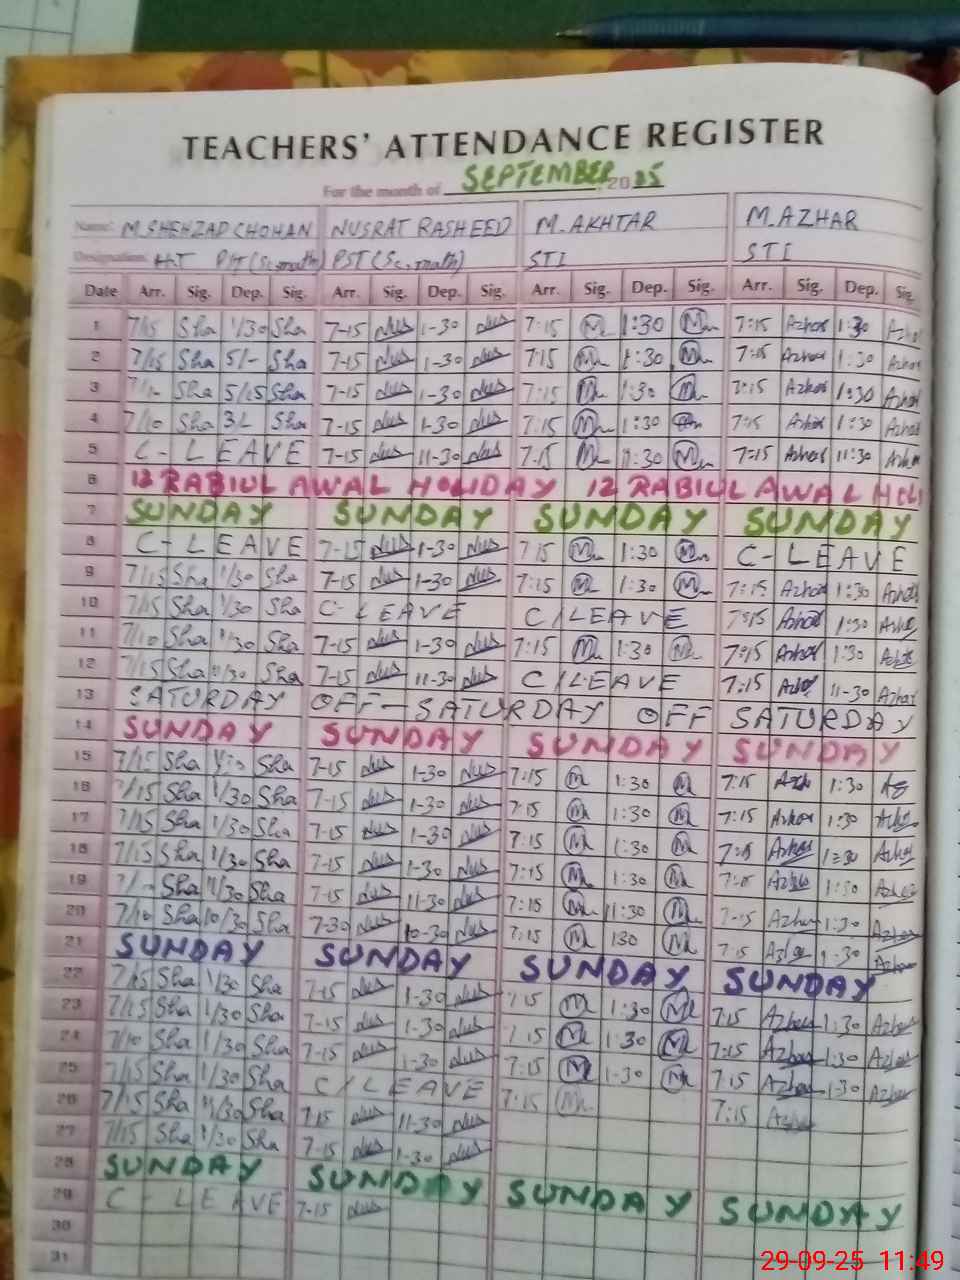 TEACHERS' ATTENDANCE REGISTER
For the month of SEPTEMBER, 2025
Name: M.SHEHZAD CHOHAN NUSRAT RASHEED M. AKHTAR M.AZHAR
Designation: PST (Sc, math) STI STI
Date Arr. Sig. Dep. Sig. Arr. Sig. Dep. Sig. Arr. Sig. Dep. Sig. Arr. Sig. Dep. Sig.
1 7/15 Sha 1/30 Sha 7-15 Nus 1-30 Nus 7:15 1:30 7:15 Azhar 1:30
2 7/15 Sha 5/- Sha 7-15 Nus 1-30 Nus 7:15 1:30 7:15 Azhar 1:30 Azhar
3 Sha 5/15 Sha 7-15 Nus 1-30 Nus 7:15 1:30 7:15 Azhar 1:30 Azhar
4 7/10 Sha Sha 7-15 Nus 1-30 Nus 7:15 1:30 7:15 Azhar 1:30 Azhar
5 C- LEAVE 7-15 Nus 11-30 Nus 7:15 7:15 Azhar 11:30
6 12 RABIUL AWAL HOLIDAY 12 RABIUL AWAL
7 SUNDAY SUNDAY SUNDAY SUNDAY
8 C- LEAVE 7-15 Nus 1-30 Nus 7:15 1:30 C- LEAVE
9 7/15 Sha 1/30 Sha 7-15 Nus 1-30 Nus 7:15 1:30 7:15 Azhar 1:30 Azhar
10 7/15 Sha 1/30 Sha C- LEAVE C/LEAVE 7:15 Azhar 1:30
11 7/10 Sha 1/30 Sha 7-15 Nus 1-30 Nus 7:15 1:30 7:15 Azhar 1:30
12 7/15 Sha 11/30 Sha 7-15 Nus 11-30 Nus C/LEAVE 7:15 11-30 Azhar
13 SATURDAY OFF - SATURDAY OFF SATURDAY
14 SUNDAY SUNDAY SUNDAY SUNDAY
15 7/15 Sha Sha 7-15 Nus 1-30 Nus 7:15 1:30 7:15 1:30
16 7/15 Sha 1/30 Sha 7-15 Nus 1-30 Nus 7:15 1:30 7:15 Azhar 1:30
17 7/15 Sha 1/30 Sha 7-15 Nus 1-30 Nus 7:15 1:30 7:15 Azhar 1:30 Azhar
18 7/15 Sha 1/30 Sha 7-15 Nus 1-30 Nus 7:15 1:30 Azhar 1:30
19 Sha 11/30 Sha 7-15 Nus 11-30 Nus 7:15 11:30 7-15 Azhar 1:30
20 7/10 Sha 10/30 Sha 7-30 Nus 10-30 Nus 7:15 130 7:15 Azhar 1:30 Azhar
21 SUNDAY SUNDAY SUNDAY SUNDAY
22 7/15 Sha 1/30 Sha 7-15 Nus 1-30 Nus 7:15 1:30 7:15 Azhar 1:30 Azhar
23 7/15 Sha 1/30 Sha 7-15 Nus 1-30 Nus 7:15 1:30 7:15 Azhar 1:30 Azhar
24 7/10 Sha 1/30 Sha 7-15 Nus 1-30 Nus 7:15 1-30 7:15 Azhar 1-30 Azhar
25 7/15 Sha 1/30 Sha C/LEAVE 7:15 7:15 Azhar
26 7/15 Sha 11/30 Sha 7-15 Nus 11-30 Nus
27 7/15 Sha 1/30 Sha 7-15 Nus 1-30 Nus
28 SUNDAY SUNDAY SUNDAY SUNDAY
29 C - LEAVE 7-15 Nus
30
31
29-09-25 11:49